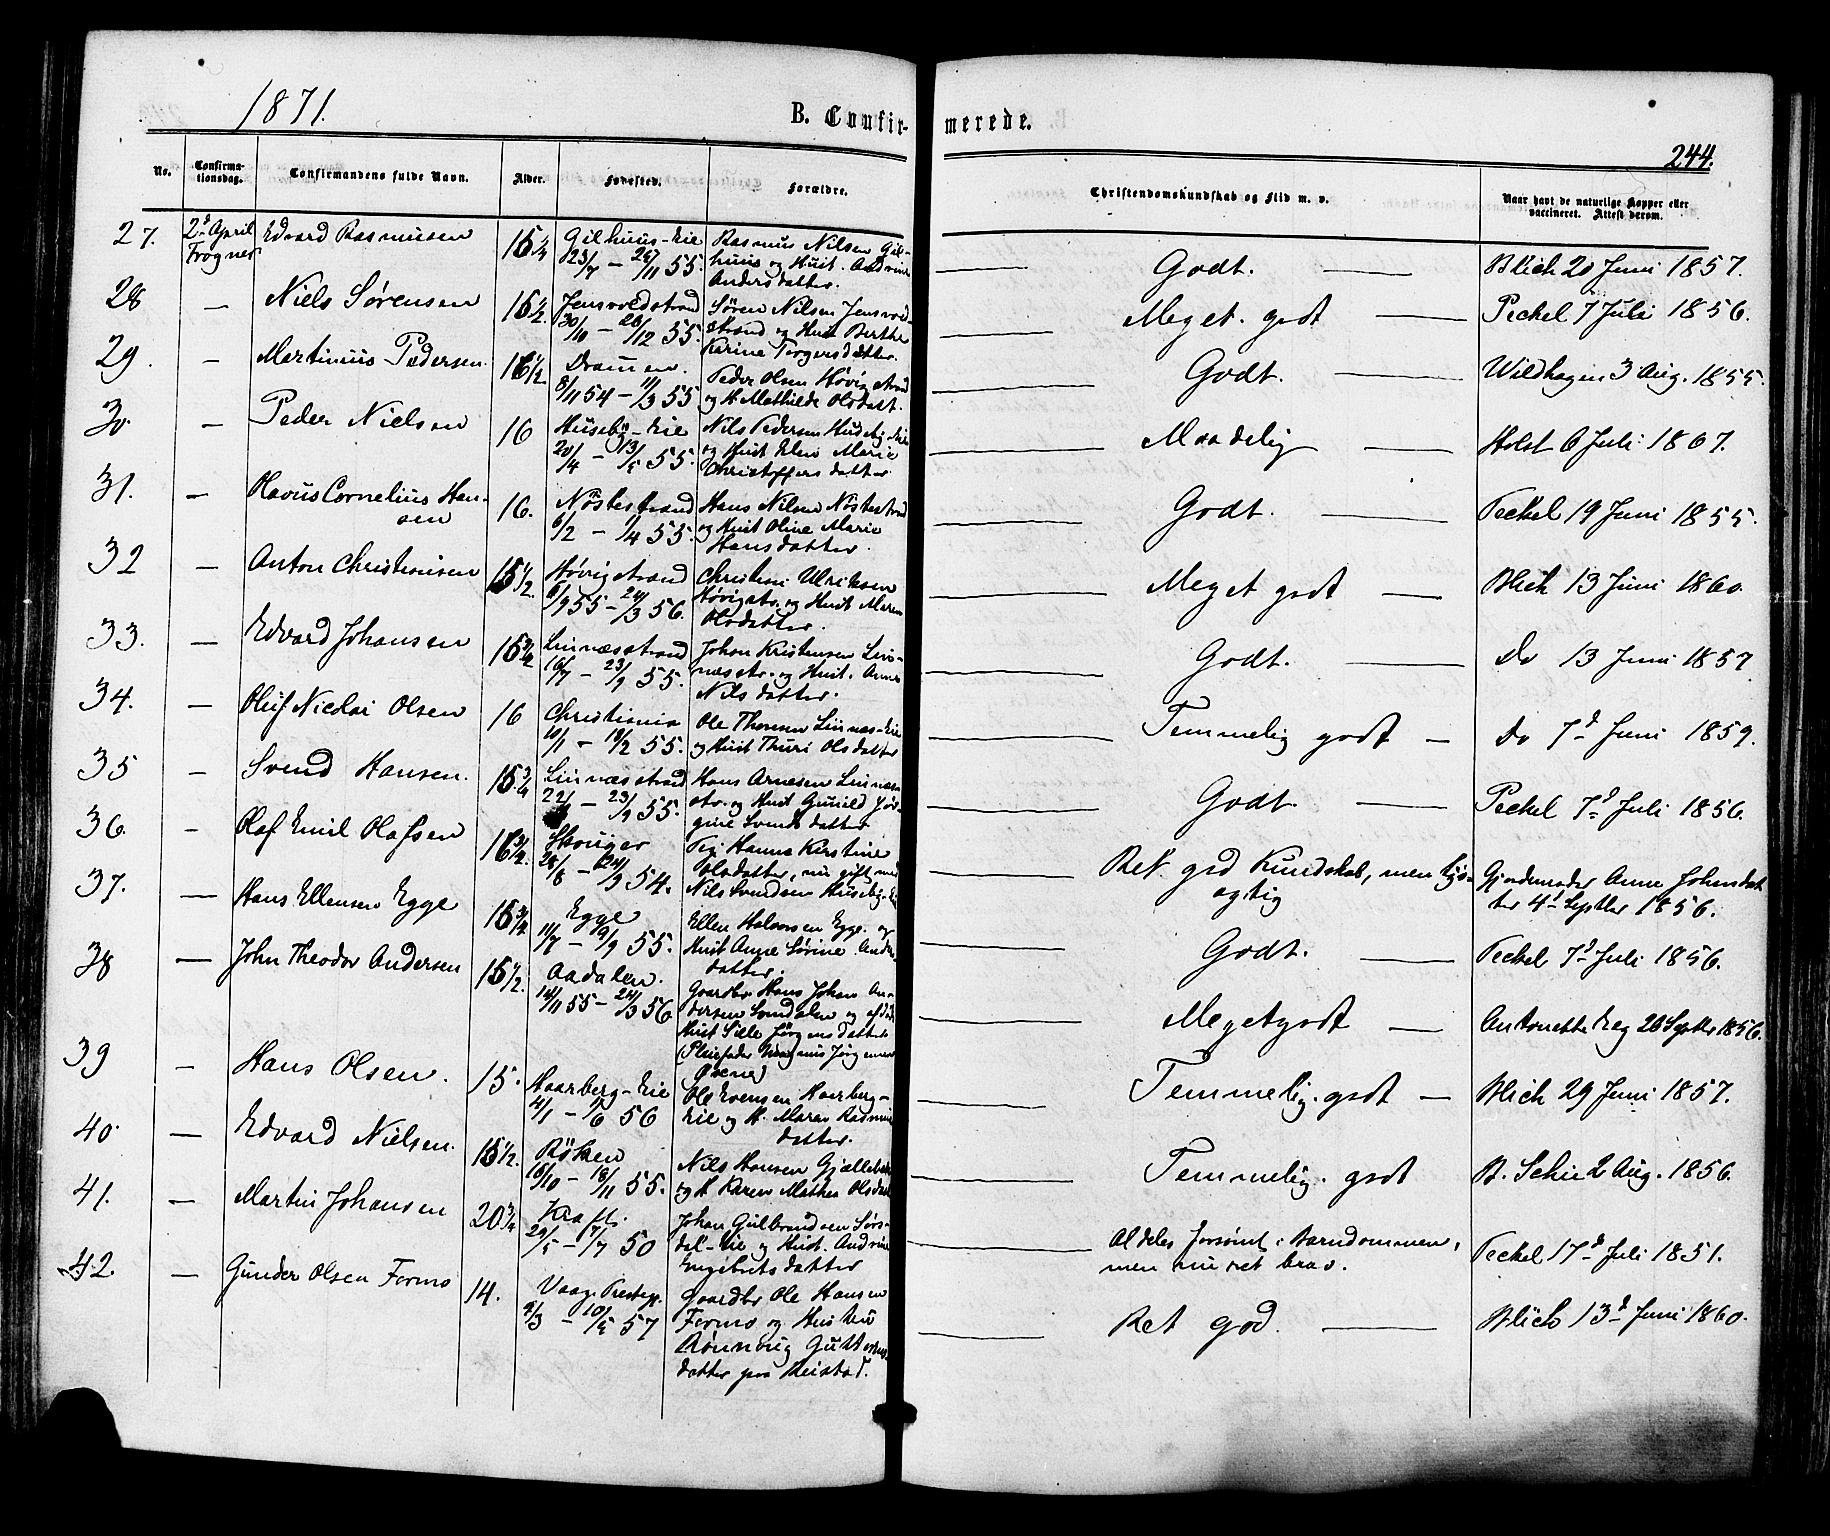 1871.
B. Confir- merede.
244.
No. Confirma-tionsdag. Confirmandens fulde Navn. Alder. Fødested. Forældre. Christendomskundskab og Flid m. v. Naar havt de naturlige Kopper eller vaccineret. Attest derom.
27. 2d April Edvard Rasmussen 15 1/4 Gilhuus-Eie Rasmus Nilsen Gil-
Frogner 23/7 — 26/11 55. huus og Hust. Andrine
Andersdatter.
— Godt. — Blich 20 Juni 1857.
28 — Niels Sørensen 15 1/2. Jensvoldstrand Søren Nilsen Jensvol-
30/10 — 26/12 55. strand og Hust Berthe
Karine Torgersdatter.
— Meget godt — Peckel 7 Juli 1856.
29. — Martinius Pedersen. 16 1/2. Dramen. Peder Olsen Høvigstrand
8/11 54 — 11/3 55 og H Mathilde Olsdatt.
— Godt. — Wildhagen 3 Aug. 1855.
30. — Peder Nielsen 16 Huseby-Eie Nils Pedersen
20/4 — 13/5 55. og Hust Elen Marie
Christoffersdatter
— Maadelig — Holst 6 Juli 1867.
31. — Olavus Cornelius Han- 16. Nöstestrand Hans Nilsen Nöstestrand
sen 6/2 — 1/4 55. og Hust Oline Marie
Hansdatter.
— Godt. — Peckel 19 Juni 1855.
32 — Anton Christiansen 15 1/2. Høvigstrand Christian Ulriksen
6/9 55 — 24/3 56. Høvigstr. og Hust Maren
Olsdatter.
— Meget godt — Blich 13 Juni 1860.
33. — Edvard Johansen 15 3/4 Linnæsstrand Johan Kristensen Lin-
16/7 — 23/9 55. næsstr. og Hust. Anne
Nilsdatter.
— Godt. — Do 13 Juni 1857
34. — Oluf Nicolai Olsen 16 Christiania Ole Thoresen Linnæs-Eie
10/1 — 18/2 55. og Hust Thuri Olsdatter
— Temmelig godt — Do 7d Juni 1859.
35 — Svend Hansen. 15 3/4 Linnæsstrand Hans Arnesen Linnæs-
22/ — 23/9 55. str. og Hust Gunild Jør-
gine Svendsdatter
— Godt. — Peckel 7d Juli 1856.
36. — Olaf Emil Olafsen 16 3/4. Skouger Pig. Hanna Kirstine
28/8 — 24/9 54. Olsdatter, nu gift med
Nils Svendsen Huseby-Eie
— Ret god Kundskab, men Gjordemoder Anne Johansdat-
agtig ter 4d Septbr 1856.
37. — Hans Ellensen Egge 15 3/4 Egge Ellen Halvorsen Egge og
11/7 — 9/9 55. Hust Anne Sørine Anders
datter.
— Godt. — Peckel 7d Juli 1856.
38 — John Theodor Andersen 15 1/2. Aadalen. Gaardbr Hans Johan An-
14/11 55 — 24/3 56 dersen og afdøde
Hust Sille Jørgensdatter
(Pleiefader Jørgensen
— Megetgodt — Antonette 20 Septbr 1856.
39 — Hans Olsen. 15. Haarberg-Eie Ole Evensen Haarberg-
4/1 — 1/6 56 Eie og H. Maren Rasmus
datter.
— Temmelig. godt — Blich 29 Juni 1857.
40. — Edvard Nielsen. 15 1/2. Röken Nils Hansen Gjællebæk
16/10 — 18/11 55. og H Karen Mathea Olsdatt
— Temmelig. godt B. Schie 2 Aug. 1856.
41. — Martin Johansen 20 3/4 Krafts. Johan Gulbrandsen Sørs-
29/5 — 17/7 50 dal-Eie og Hust. Andrine
Engebretsdatter
— Aldeles forsömt i Barndommen, Peckel 17d Juli 1851.
men nu ret brav.
42. — Gunder Olsen Formo 14. Vaage Prestegj. Gaardbr Ole Hansen
9/3 — 10/5 57 Formo og Hustru
Rönnoug Guttorms-
datter paa Reistad.
— Ret god. — Blich 13d Juni 1860.